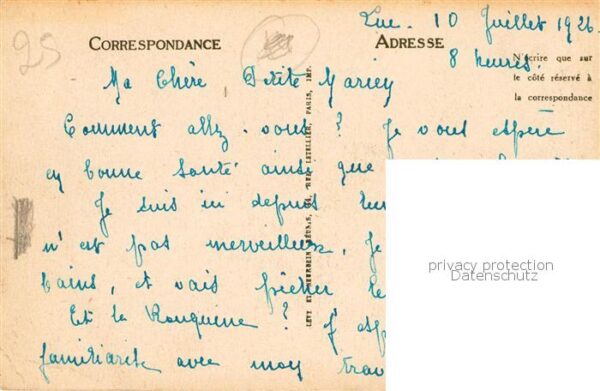 25
Luc. 10 Juillet 1926.
8 heures.
CORRESPONDANCE
ADRESSE
N'écrire que sur
le côté réservé à
la correspondance
Ma Chère Petite
Comment allez-vous? Je vous espère
en bonne santé ainsi que
Je suis ici depuis
n'est pas merveilleux, Je
bains, et vais pêcher le
Et la ? J'esp
familiarite avec moy trav
LEVY ET NEURDEIN RÉUNIS, 44, RUE LETELLIER, PARIS, IMP.
privacy protection
Datenschutz